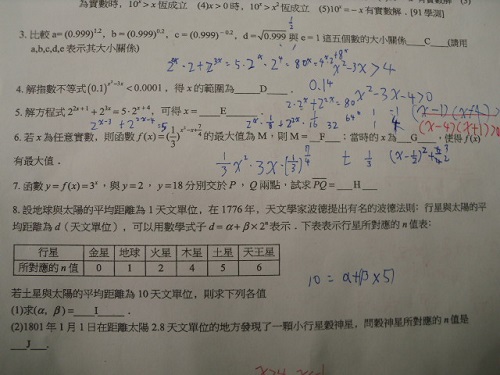 為實數時，10ˣ > x 恆成立 (4)x > 0 時，10ˣ > x² 恆成立 (5)10ˣ = −x 有實數解．[91 學測]
3. 比較 a= (0.999)^{1.2}，b = (0.999)^{0.2}，c = (0.999)^{-0.2}，d = √0.999 與 e = 1 這五個數的大小關係____C____(請用
a,b,c,d,e 表示其大小關係)
4. 解指數不等式 (0.1)^{x²−3x} < 0.0001，得 x 的範圍為____D____．
5. 解方程式 2^{2x+1} + 2^{3x} = 5·2^{x+4}，可得 x =____E____
6. 若 x 為任意實數，則函數 f(x) = (1/3)^{x²−x+2} 的最大值為 M，則 M=__F___；當時的 x 為___G___，使得 f(x)
有最大值．
7. 函數 y = f(x) = 3ˣ，與 y = 2，y = 18 分別交於 P，Q 兩點，試求 PQ = ___H___
8. 設地球與太陽的平均距離為 1 天文單位，在 1776 年，天文學家波德提出有名的波德法則：行星與太陽的平
均距離為 d（天文單位），可以用數學式子 d = α + β × 2ⁿ 表示．下表表示行星所對應的 n 值表：
行星 金星 地球 火星 木星 土星 天王星
所對應的 n 值 0 1 2 4 5 6
若土星與太陽的平均距離為 10 天文單位，則求下列各值
10 = α+(β × 5)
(1)求(α, β) =____I____．
(2)1801 年 1 月 1 日在距離太陽 2.8 天文單位的地方發現了一顆小行星穀神星，問穀神星所對應的 n 值是
___J___．